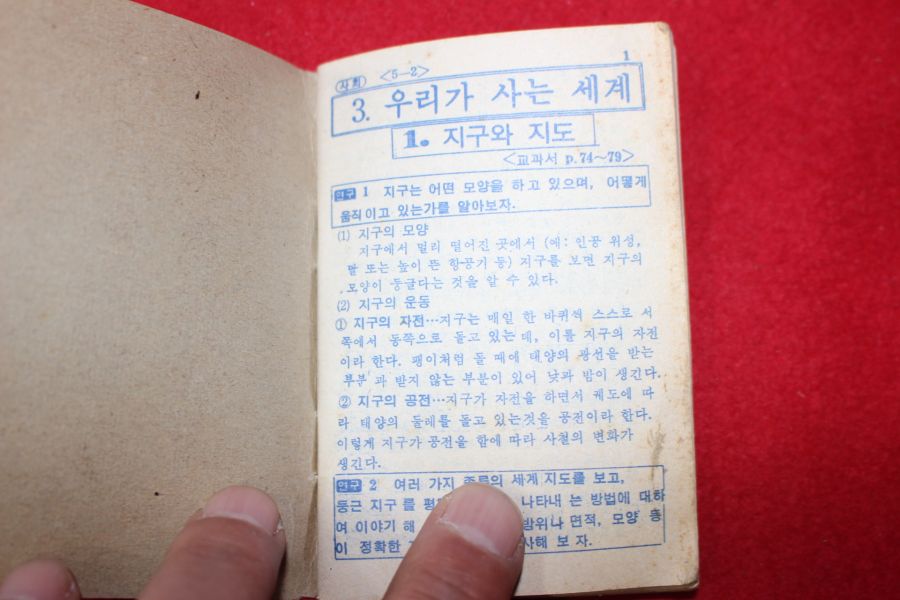 1
사회 <5—2>
3. 우리가 사는 세계
1. 지구와 지도
<교과서 p.74~79>
연구 1 지구는 어떤 모양을 하고 있으며, 어떻게
움직이고 있는가를 알아보자.
(1) 지구의 모양
지구에서 멀리 떨어진 곳에서 (예: 인공 위성,
달 또는 높이 뜬 항공기 등) 지구를 보면 지구의
모양이 둥글다는 것을 알 수 있다.
(2) 지구의 운동
① 지구의 자전…지구는 매일 한 바퀴씩 스스로 서
쪽에서 동쪽으로 돌고 있는 데, 이를 지구의 자전
이라 한다. 팽이처럼 돌 때에 태양의 광선을 받는
부분과 받지 않는 부분이 있어 낮과 밤이 생긴다.
② 지구의 공전…지구가 자전을 하면서 궤도에 따
라 태양의 둘레를 돌고 있는것을 공전이라 한다.
이렇게 지구가 공전을 함에 따라 사철의 변화가
생긴다.
연구 2 여러 가지 종류의 세계 지도를 보고,
둥근 지구를 나타내 는 방법에 대하
여 이야기 해 면적, 모양 등
이 정확한 보 자.